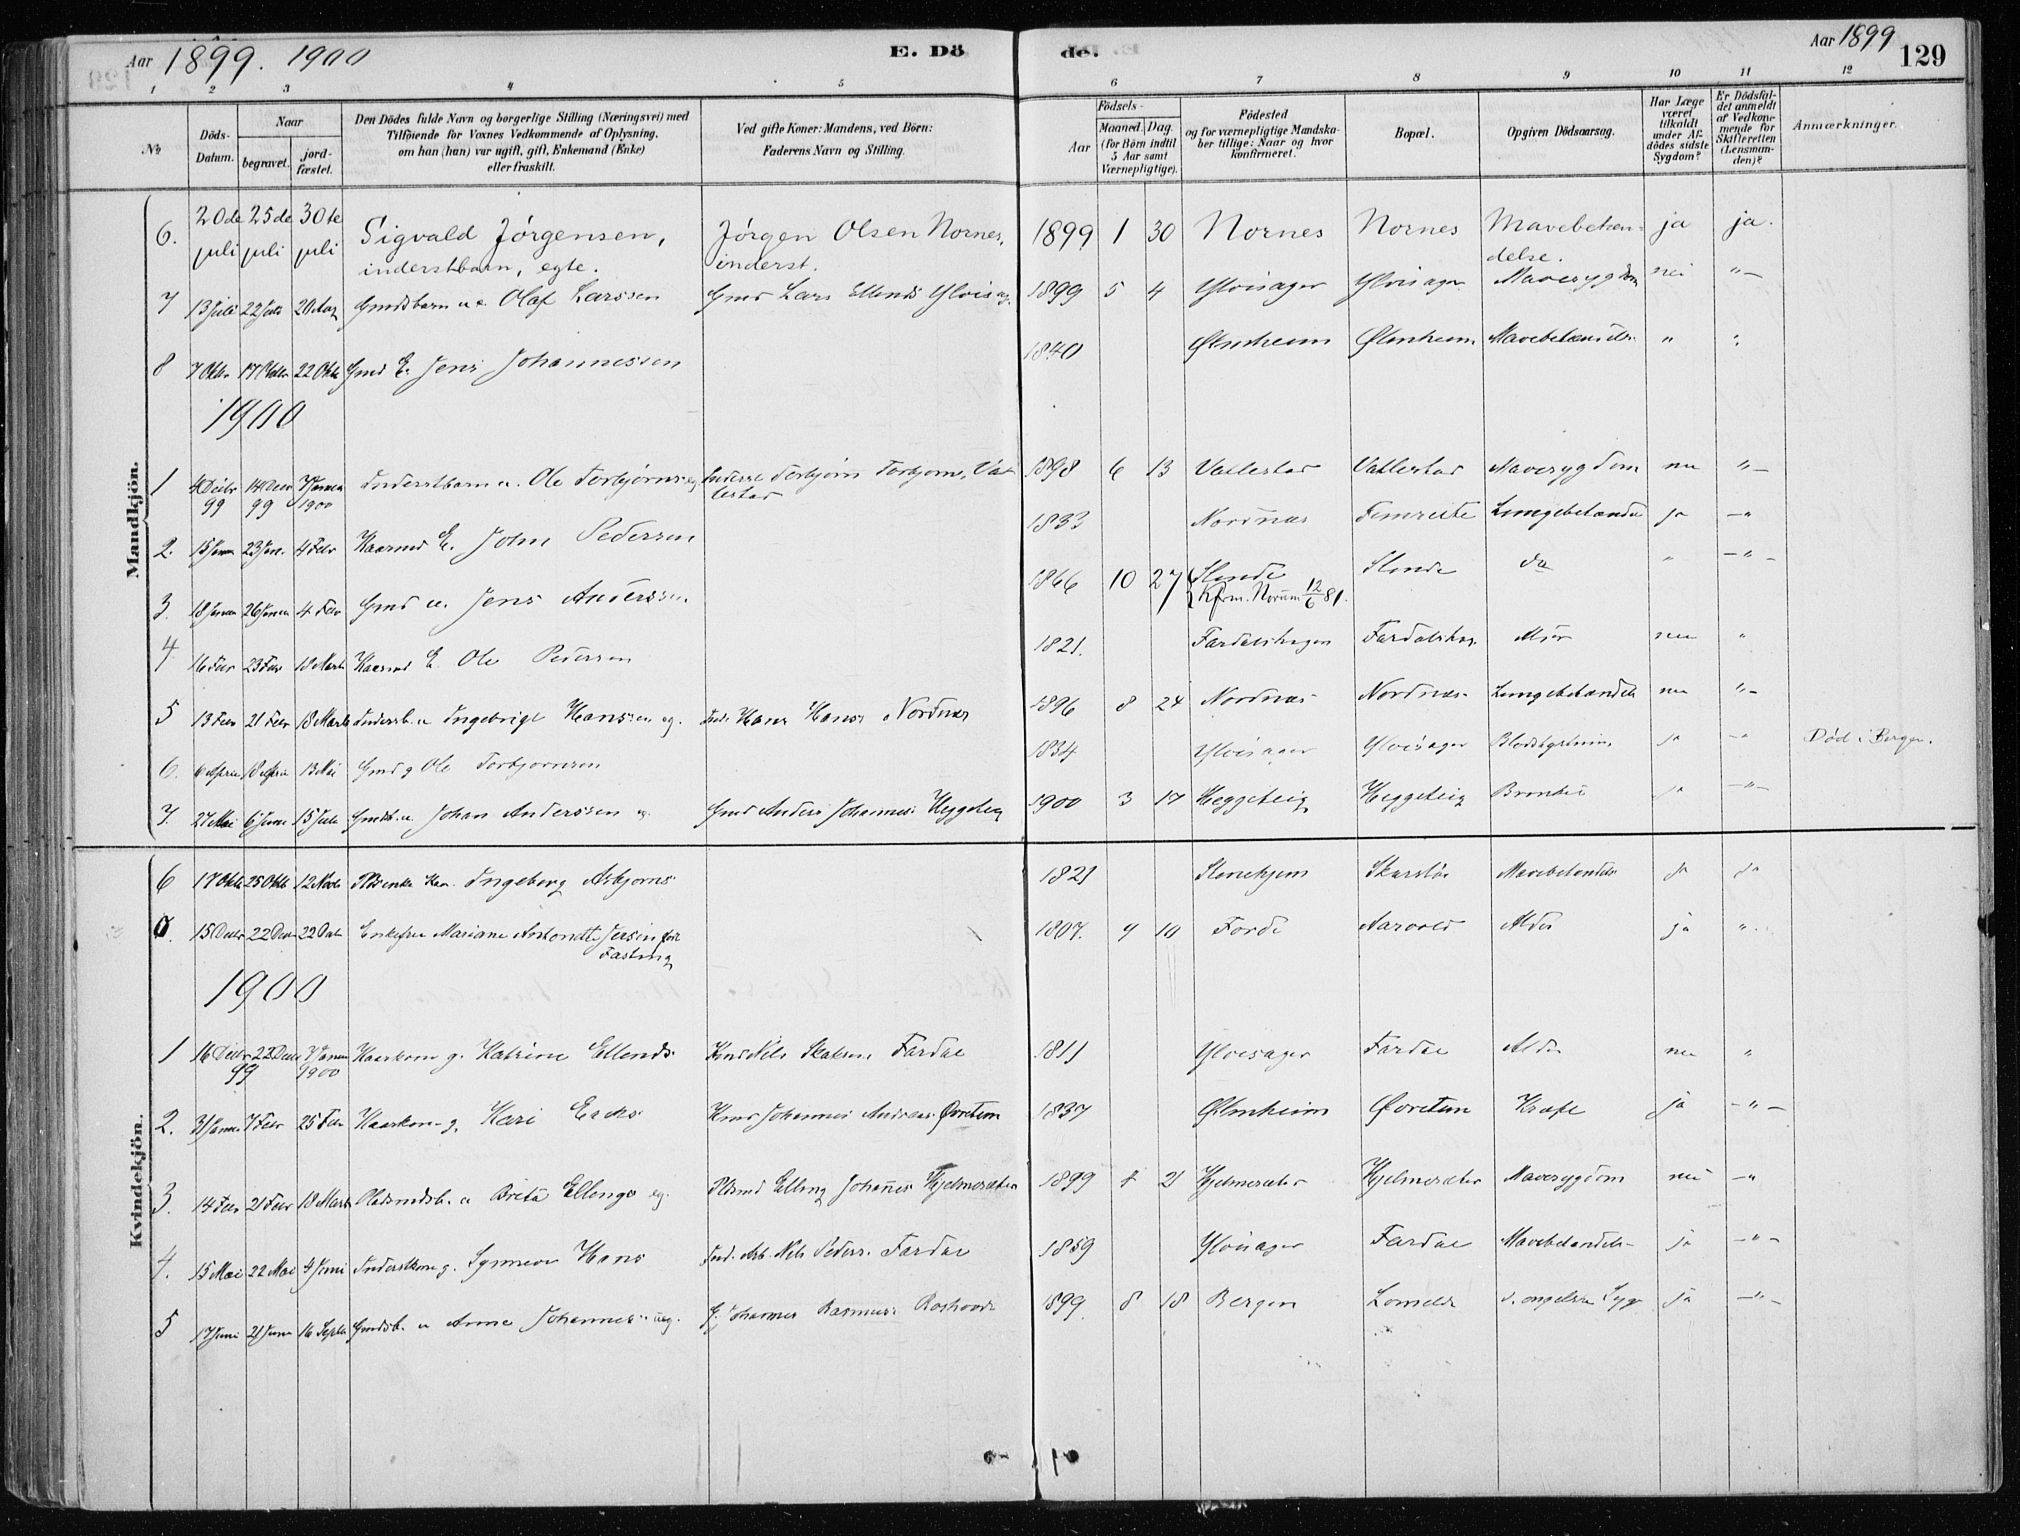 Aar 1899. 1900 E. Dö de. Aar 1899 129
1 2 3 4 5 6 7 8 9 10 11 12
No
Döds-Datum.
Naar
begravet.
jord-fæstet.
Den Dödes fulde Navn og borgerlige Stilling (Næringsvei) med
Tilföiende for Voxnes Vedkommende af Oplysning,
om han (hun) var ugift, gift, Enkemand (Enke)
eller fraskilt.
Ved gifte Koner: Mandens, ved Börn:
Faderens Navn og Stilling.
Födsels-
Aar
Maaned. Dag.
(for Börn indtil
5 Aar samt
Værnepligtige).
Födested
og for værnepligtige Mandska-
ber tillige: Naar og hvor
konfirmeret.
Bopæl.
Opgiven Dödsaarsag.
Har Læge
været
tilkaldt
under Af-
dödes sidste
Sygdom?
Er Dödsfal-
det anmeldt
af Vedkom-
mende for
Skifteretten
(Lensman-
den)?
Anmærkninger.
Mandkjön.
6. 20de juli 25de juli 30te juli Sigvald Jørgensen, inderstbarn, egte. Jørgen Olsen Nornes, inderst. 1899 1 30 Nornes Nornes Mavebetæn-delse. ja ja.
7 13 Juli 22 Juli 20 Aug Gmdsbarn u. Olaf Larssen Gmd Lars Ellends Ylvisag. 1899 5 4 Ylvisager Ylvisager Mavesygdom nei "-
8 7 Oktbr 17 Oktbr 22 Oktb Gmd E. Jens Johannessen 1840 Ølmheim Ølmheim "  "
1900
1 4 Decbr 99 14 Decbr 99 7 Januar 1900 Inderstbarn u. Ole Torbjørns. eg Inderst Torbjørn Torbjørns. Vallestad 1898 6 13 Vallestad Vallestad Mavesygdom nei "-
2. 15 Januar 23 Jan. 4 Febr Kaarmd E. John Pedersen 1833 Nordnæs Fimreite Lungebetændelse ja -"
3. 18 Januar 26 Januar 4 Febr Gmd u. Jens Anderssen 1866 10 27 Slinde Kfrm. Norum 12/6 81. Slinde do " -"-
4 16 Febr 23 Febr 18 Marts Kaarmd E. Ole Pedersen 1821. Fardalshagen Fardalshag. nei "
5 13 Febr 21 Febr 18 Marts Inderstb. u Ingebrigt Hanssen eg. Ind. Hans Hans. Nordnæs 1896 8 24 Nordnæs Nordnæs Lungebetændelse nei "-
6. 6 April 18 April 13 Mai Gmd g Ole Torbjørnsen 1834 Ylvisager Ylvisager ja -" Død i Bergen.
7. 27 Mai 6 Juni 15 Juli Gmdsb. u. Johan Anderssen eg. Gmd Anders Johannes. Heggeteig 1900 3 17 Heggeteig Heggeteig Bronkit ja -"-
Kvindekjön.
6 17 Oktb 25 Oktb 12 Novb Plsenke Kar. Ingeborg Asbjørns. 1821 Stenehjem Mavebetændelse ja ja
15 Decbr 22 Decbr 22 Decb Enkefru Mariane Antonette Jersin født Fasting 1807. 9 10 Førde Aarovold Alder ja "
1900
1 16 Decbr 99 22 Decbr 7 Januar 1900 Kaarkone g. Katrine Ellends. Kmd Nils Fardal 1811 Ylvisager Fardal Alder nei "
2. 31 Januar 7 Febr 25 Febr Kaarkone g. Kari Kmd Johannes Andreas. Øvretun 1837 Ølmheim Øvretun Kræft ja -"-
3. 14 Febr 21 Febr 18 Marts Pladsmdsb. u Brita Ellings. eg. Plsmd Elling Johannes. Hjelmesæter 1899 21 Hjelmesæter Hjelmesæter Mavesygdom nei -"
4. 15 Mai 22 Mai 4 Juni Inderstkone g. Synneve Hans. Ind. Arb. Nils Peders. Fardal 1859 Ylvisager Fardal Mavebetændelse ja -"-
5 17 Juni 21 Juni 16 Septbr Gmdsb. u Anna Johannes. uæg. G. Johannes Rasmus. 1899 8 18 Bergen Lomelde d. engelske Syge ja -"-